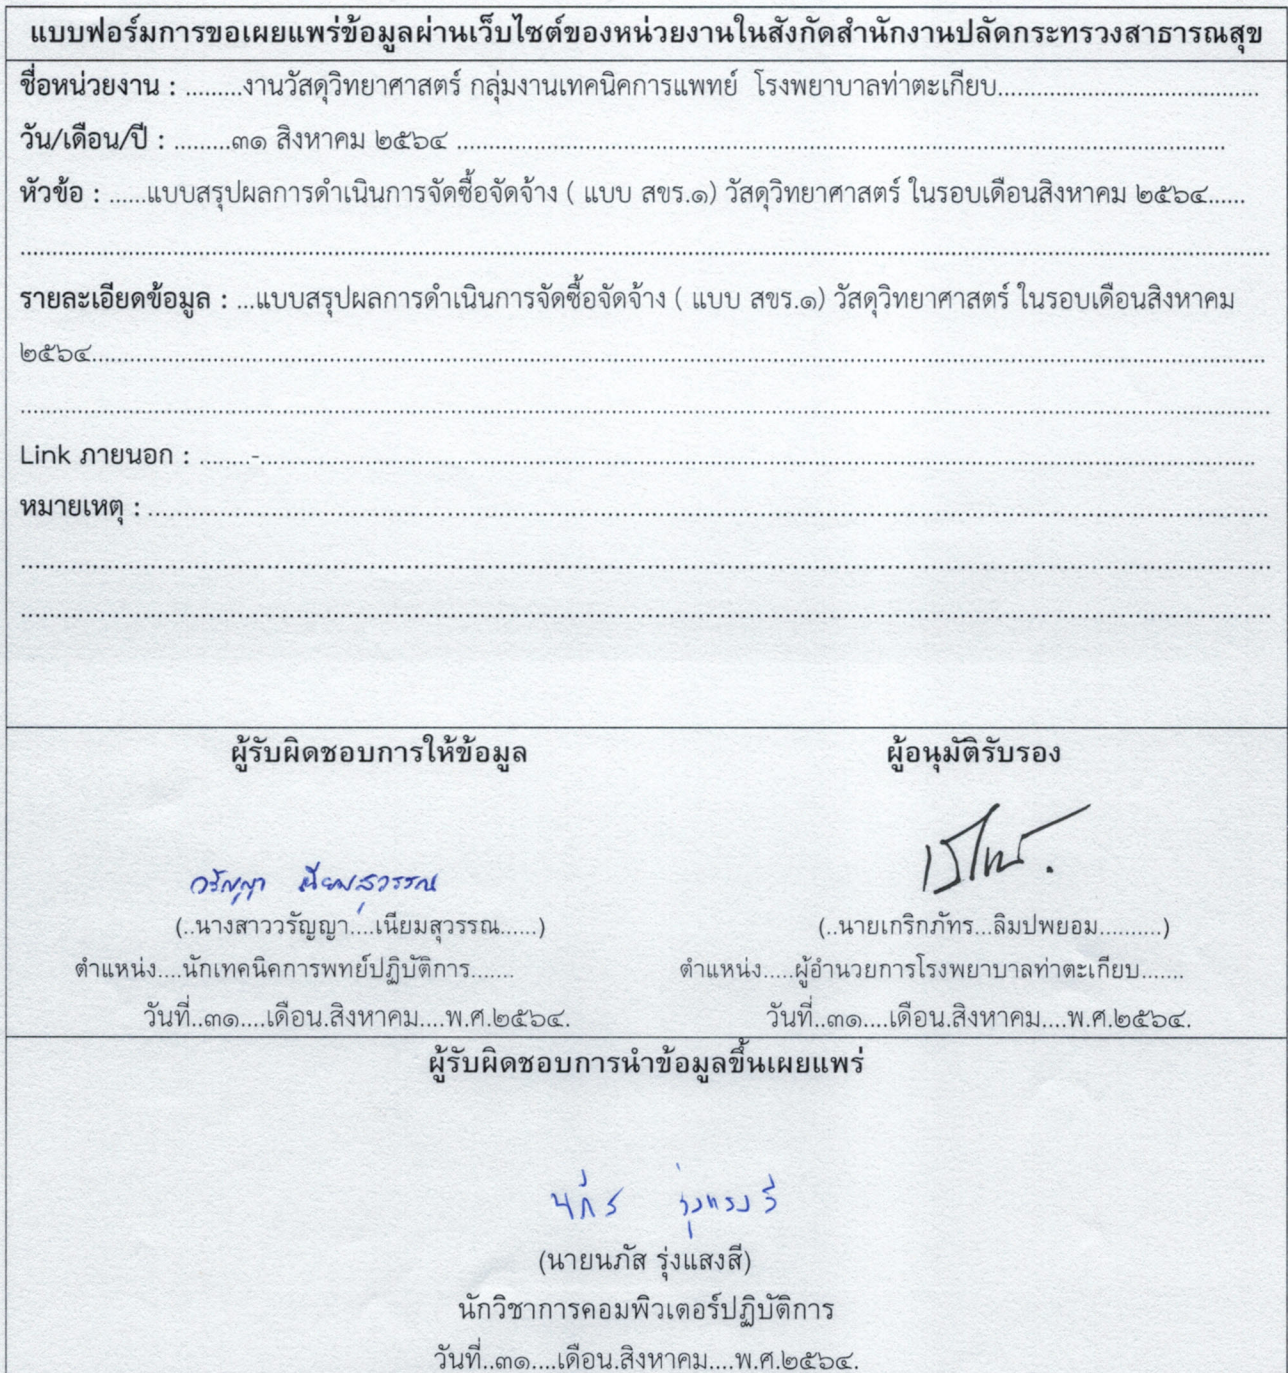 แบบฟอร์มการขอเผยแพร่ข้อมูลผ่านเว็บไซต์ของหน่วยงานในสังกัดสำนักงานปลัดกระทรวงสาธารณสุข
ชื่อหน่วยงาน : .........งานวัสดุวิทยาศาสตร์ กลุ่มงานเทคนิคการแพทย์ โรงพยาบาลท่าตะเกียบ..........................................
วัน/เดือน/ปี : .........๓๑ สิงหาคม ๒๕๖๔ ..........................................................................................................
หัวข้อ : ......แบบสรุปผลการดำเนินการจัดซื้อจัดจ้าง ( แบบ สขร.๑) วัสดุวิทยาศาสตร์ ในรอบเดือนสิงหาคม ๒๕๖๔......
รายละเอียดข้อมูล : ...แบบสรุปผลการดำเนินการจัดซื้อจัดจ้าง ( แบบ สขร.๑) วัสดุวิทยาศาสตร์ ในรอบเดือนสิงหาคม
๒๕๖๔..........................................................................................................
Link ภายนอก : ........-..........................................................................................................
หมายเหตุ : ..........................................................................................................
ผู้รับผิดชอบการให้ข้อมูล
ผู้อนุมัติรับรอง
วรัญญา เนียมสุวรรณ
(..นางสาววรัญญา....เนียมสุวรรณ......)
(..นายเกริกภัทร...ลิมปพยอม..........)
ตำแหน่ง....นักเทคนิคการพทย์ปฏิบัติการ.......
ตำแหน่ง.....ผู้อำนวยการโรงพยาบาลท่าตะเกียบ.......
วันที่..๓๑....เดือน.สิงหาคม....พ.ศ.๒๕๖๔.
วันที่..๓๑....เดือน.สิงหาคม....พ.ศ.๒๕๖๔.
ผู้รับผิดชอบการนำข้อมูลขึ้นเผยแพร่
นภัส รุ่งแสงสี
(นายนภัส รุ่งแสงสี)
นักวิชาการคอมพิวเตอร์ปฏิบัติการ
วันที่..๓๑....เดือน.สิงหาคม....พ.ศ.๒๕๖๔.